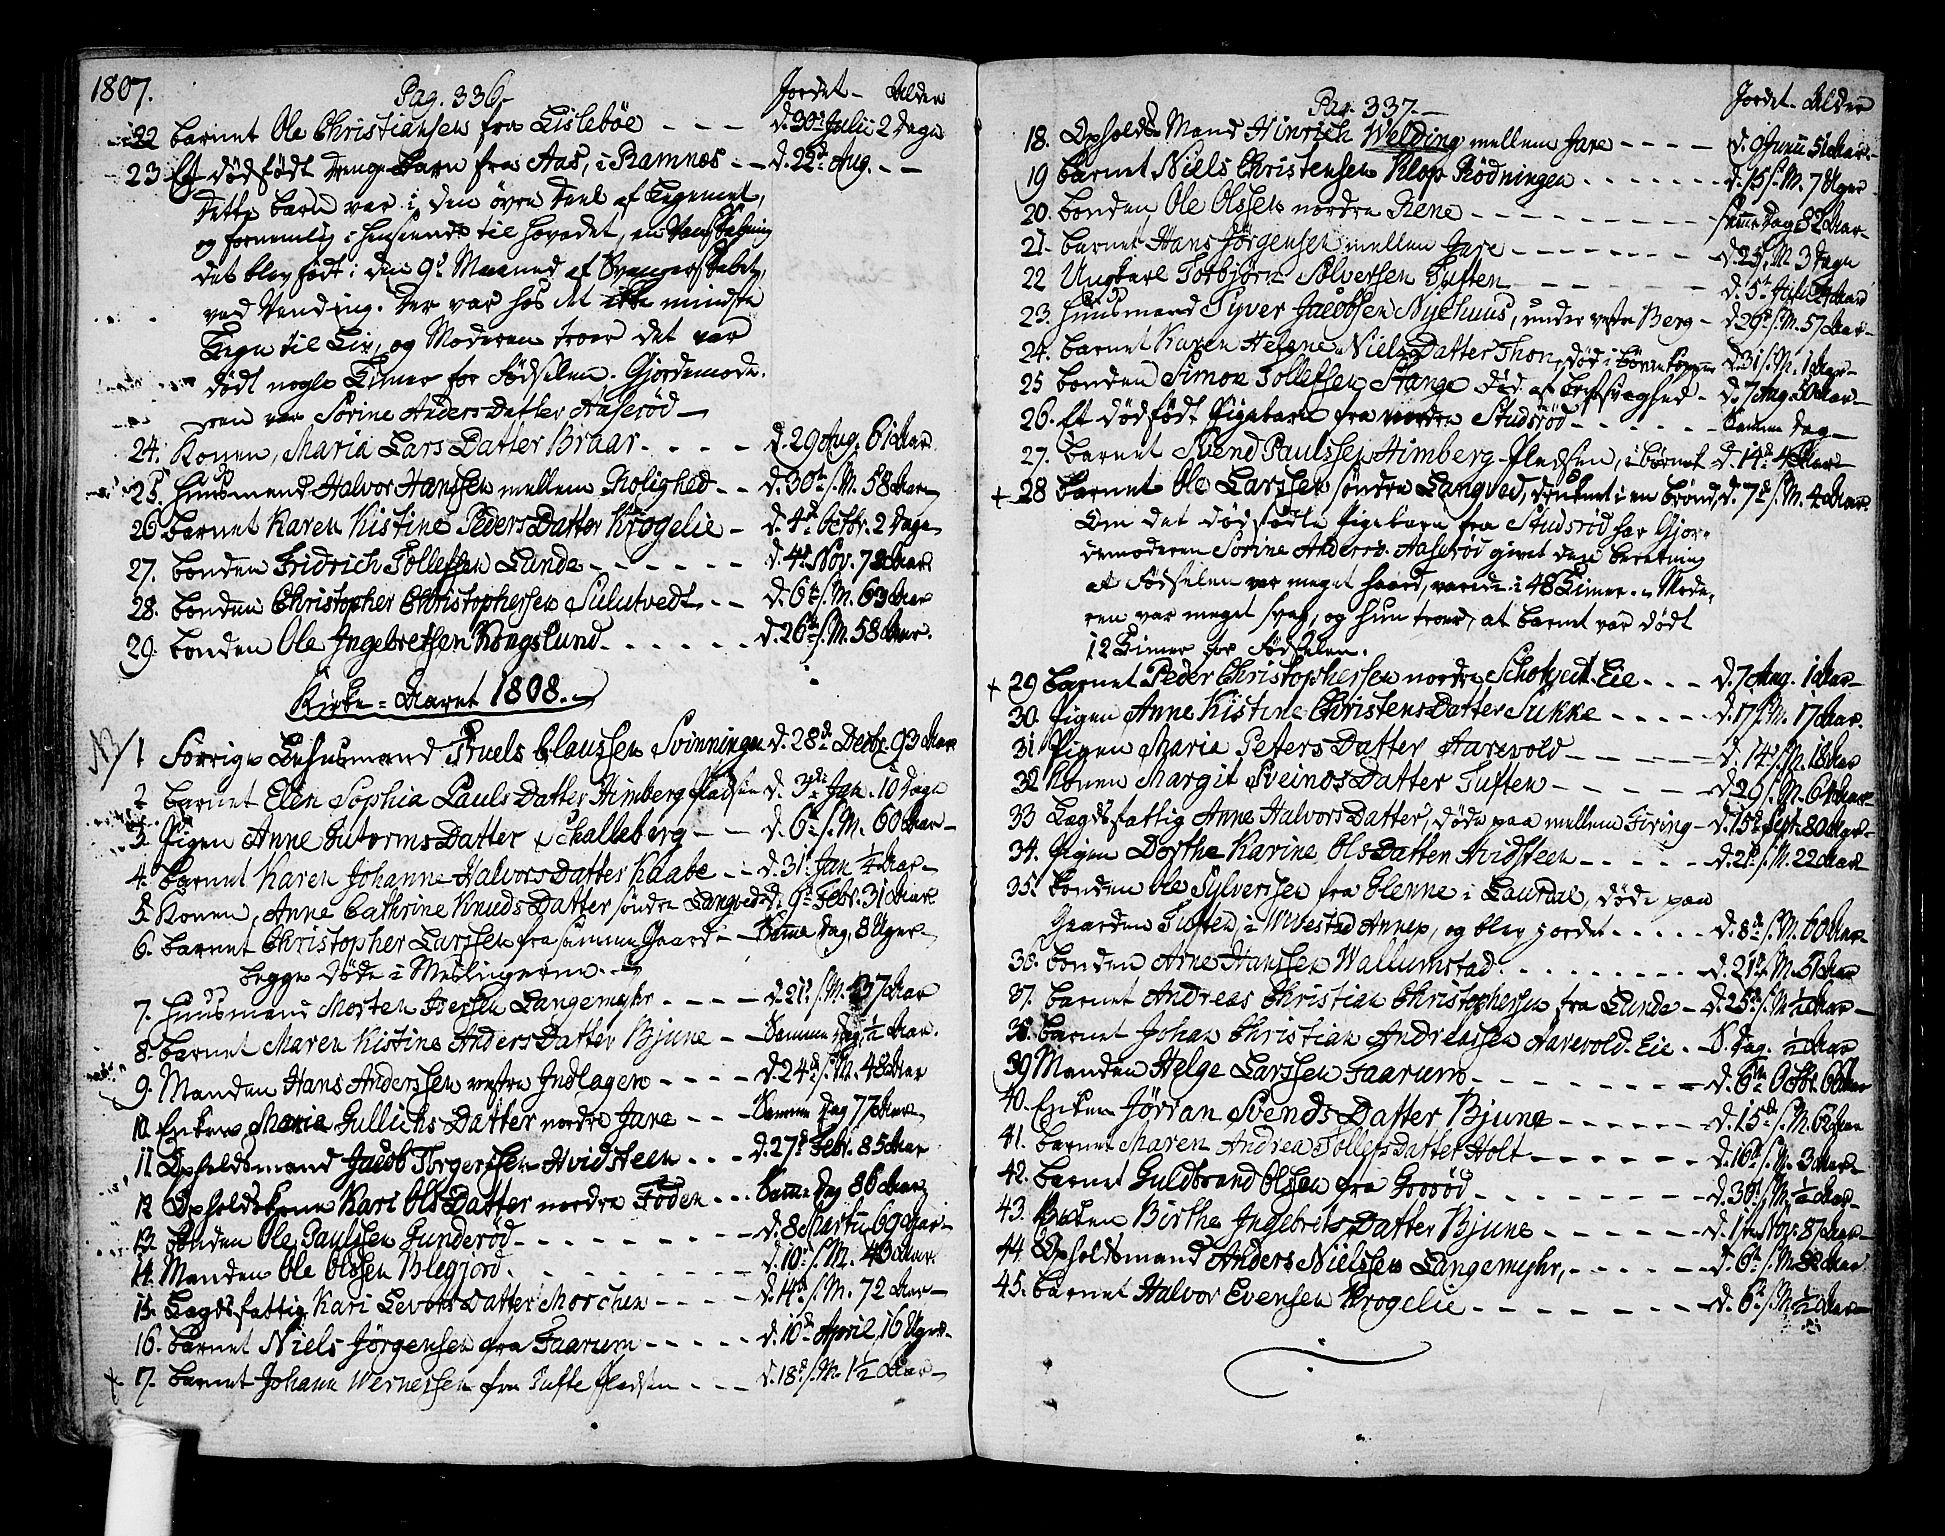 1807.
Pag. 336.
Jordet - Alder
22 barnet Ole Christiansen fra Lislebøe - - - d. 30te Julii 2 Dage
23 Et dødfødt drenge Barn fra Aas, i Ramnes - - d. 22de Aug. - -
Dette barn var i den øvre Deel af Legemet,
og fornemlig i henseende til hovedet, en
det blev født i den 9de Maaned af Svangerskabet,
ved Vending. Der var hos det ikke mindste
Tegn til Liv, og Moderen troer det var
dødt nogle Timer før Fødselen. Gjordemode-
ren var Sørine Anders Datter Aaserød -
24. Konen, Maria Lars Datter Bruar. - - - d. 29 Aug. 61 Aar
25. Huusmand Halvor Hanssen mellem Rolighed - - d. 30te s. M. 58 Aar
26 barnet Karen Kistine Peders Datter Krogelie - d. 4de Octbr. 2 Dage
27. bonden Fridrich Tollefsen Lunde - - - - - d. 4de Nov. 72 Aar
28. bonden Christopher Christophersen Sulutvedt - - d. 6te s. M. 63 Aar
29. bonden Ole Ingebretsen Kongslund. - - - - - d. 26te s. M. 58 Aar.
Kirke-Aaret 1808.
NB/ 1 Forrige Lehnsmand Truels Claussen Svinningen d. 28de Decbr. 93 Aar
2 barnet Elen Sophia Pauls Datter Himberg Pladsen d. 3die Jan. 10 Dage
3. Pigen Anne Gutorms Datter Schalleberg - - d. 6te s. M. 60 Aar -
4. barnet Karen Johanne Halvors Datter Raabe - - d. 31te Jan 1/4 Aar -
5. Konen, Anne Cathrine Knuds Datter søndre Langved d. 9de Febr. 31 Aar
6. barnet Christopher Larssen fra samme Gaard - - Samme Dag, 8 Uger -
begge døde i Meslingerne.
7. Huusmand Morten Iversen Langemyhr - - - - d. 21de s. M. 37 Aar
8. barnet Maren Kistine Anders Datter Bjune - - Samme Dag, 1/2 Aar.
9. Manden Hans Anderssen vestre Indlagen - - - - d. 24de s. M. 48 Aar
10. Enken Maria Gullichs Datter nordre Jare - - - Samme Dag 77 Aar
11. Opholdsmand Jacob Torgerssen Hvidsteen - - - d. 27de Febr. 85 Aar
12 Opholdskone Kari Ols Datter nordre Føden - - - Samme Dag 86 Aar
13. bonden Ole Paulssen Gunderød - - - - - - d. 8 Martii 69 Aar
14. Manden Ole Olssen Blegjord. - - - - - - d. 10de s. M. 43 Aar
15. Lægdsfattig Kari Levors Datter Morchen - - - - d. 14de s. M. 72 Aar -
16. barnet Niels Jørgensen fra Taarum - - - - - d. 10de April, 16 Uger -
+ 17. barnet Johann Wernessen fra Tufte Pladsen - - - d. 18de s. M. 1 1/2 Aar -
Pag. 337. -
Jordet - Alder
18. Opholds Mand Hinrich Welding mellem Jare - - - - d. 9 Junii 51 Aar -
19 barnet Niels Christensen Klop Rødningen - - - - - - - d. 15 s. M. 7 Uger
20. bonden Ole Olssen nordre Rene - - - - - - - - - - Samme Dag 82 Aar -
21. barnet Hans Jørgensen mellem Jare - - - - - - - d. 25 s. M. 3 Dage
22 Ungkarl Torbjørn Sølversen Tuften - - - - - - - d. 5te Julii Aar
23. Huusmand Syver Jacobsen Nyehuus, under vestre Berg - d. 29de s. M. 57 Aar -
24. barnet Karen Helene Niels Datter Thon, død i børnekopper d. 31 s. M. 1 Aar -
25 bonden Simon Tollefsen Stange død af brystsvaghed - d. 7 Aug. 50 Aar -
26. Et dødfødt Pigebarn fra nordre Studsrød - - - - - - - Samme Dag -
27. barnet Svend Paulssen Himberg Pladsen, i børnek d. 14de Aar -
+ 28 barnet Ole Larssen søndre Langved, druknet i en brønd, d. 7de s. M. 4 Aar.
Om det dødfødte Pigebarn fra Studsrød har Gjor-
demoderen Sørine Anders. Aaserød givet den beretning
at Fødselen var meget haard, varede i 48 Timer. Mode-
ren var meget svag, og hun troer, at barnet var dødt
12 Timer før Fødselen.
+ 29 barnet Peder Christophersen nordre Schotvedt Eie - - - d. 7 Aug. 1 Aar -
30. Pigen Anne Kistine Christens Datter Sukke - - - - - d. 17 s. M. 17 Aar.
31 Pigen Maria Peters Datter Aarevold - - - - - - d. 14de s. M. 18 Aar
32 Konen Margit Sveinos Datter Tuften - - - - - - d. 29 s. M. 64 Aar -
33 Lægdsfattig Anne Halvors Datter, døde paa mellem Firing - d. 15de Sept. 80 Aar -
34. Pigen Dorthe Karine Ols Datter Hvidsteen - - - - - d. 2de s. M. 22 Aar
35. bonden Ole Sylverssen fra Glenne i Laurdal, døde paa
Gaarden Tuften, i Hvivestad Annex, og blev jordet - - - - - d. 8de s. M. 60 Aar -
36. bonden Arne Hanssen Wallumstad. - - - - - - - - d. 21de s. M. 51 Aar
37. barnet Andreas Christian Christophersen fra Lunde - d. 25de s. M. 1/2 Aar -
38. barnet Johan Christian Andreassen Aarevold-Eie. - S. Dag. 1/2 Aar
39 Manden Helge Larssen Taarum - - - - - - - - d. 6te Octbr. 66 Aar
40. Enken Jørran Svends Datter Bjune - - - - - - d. 15de s. M. 62 Aar
41. barnet Maren Andrea Tollefs Datter Holt - - - - - - d. 16de s. M. 3 Aar -
42. barnet Guldbrand Olssen fra Gorød - - - - - - - - d. 30te s. M. 1/2 Aar -
43. Birthe Ingebrits Datter Bjune - - - - - - d. 1te Novr. 87 Aar -
44. Opholdsmand Anders Nielssen Langemyhr, - - - - - d. 6te s. M. 82 Aar
45. barnet Halvor Evensen Krogelie - - - - - - - d. 6te s. M. 1/2 Aar -